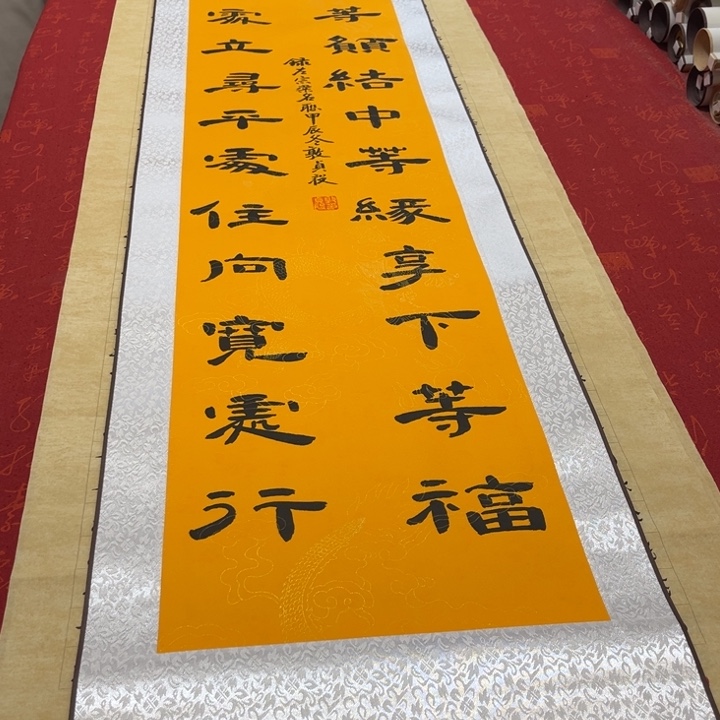 等願結中等緣享下等福
處立尋平處住向寬處行
錄左宗棠名聯甲辰冬敦貞